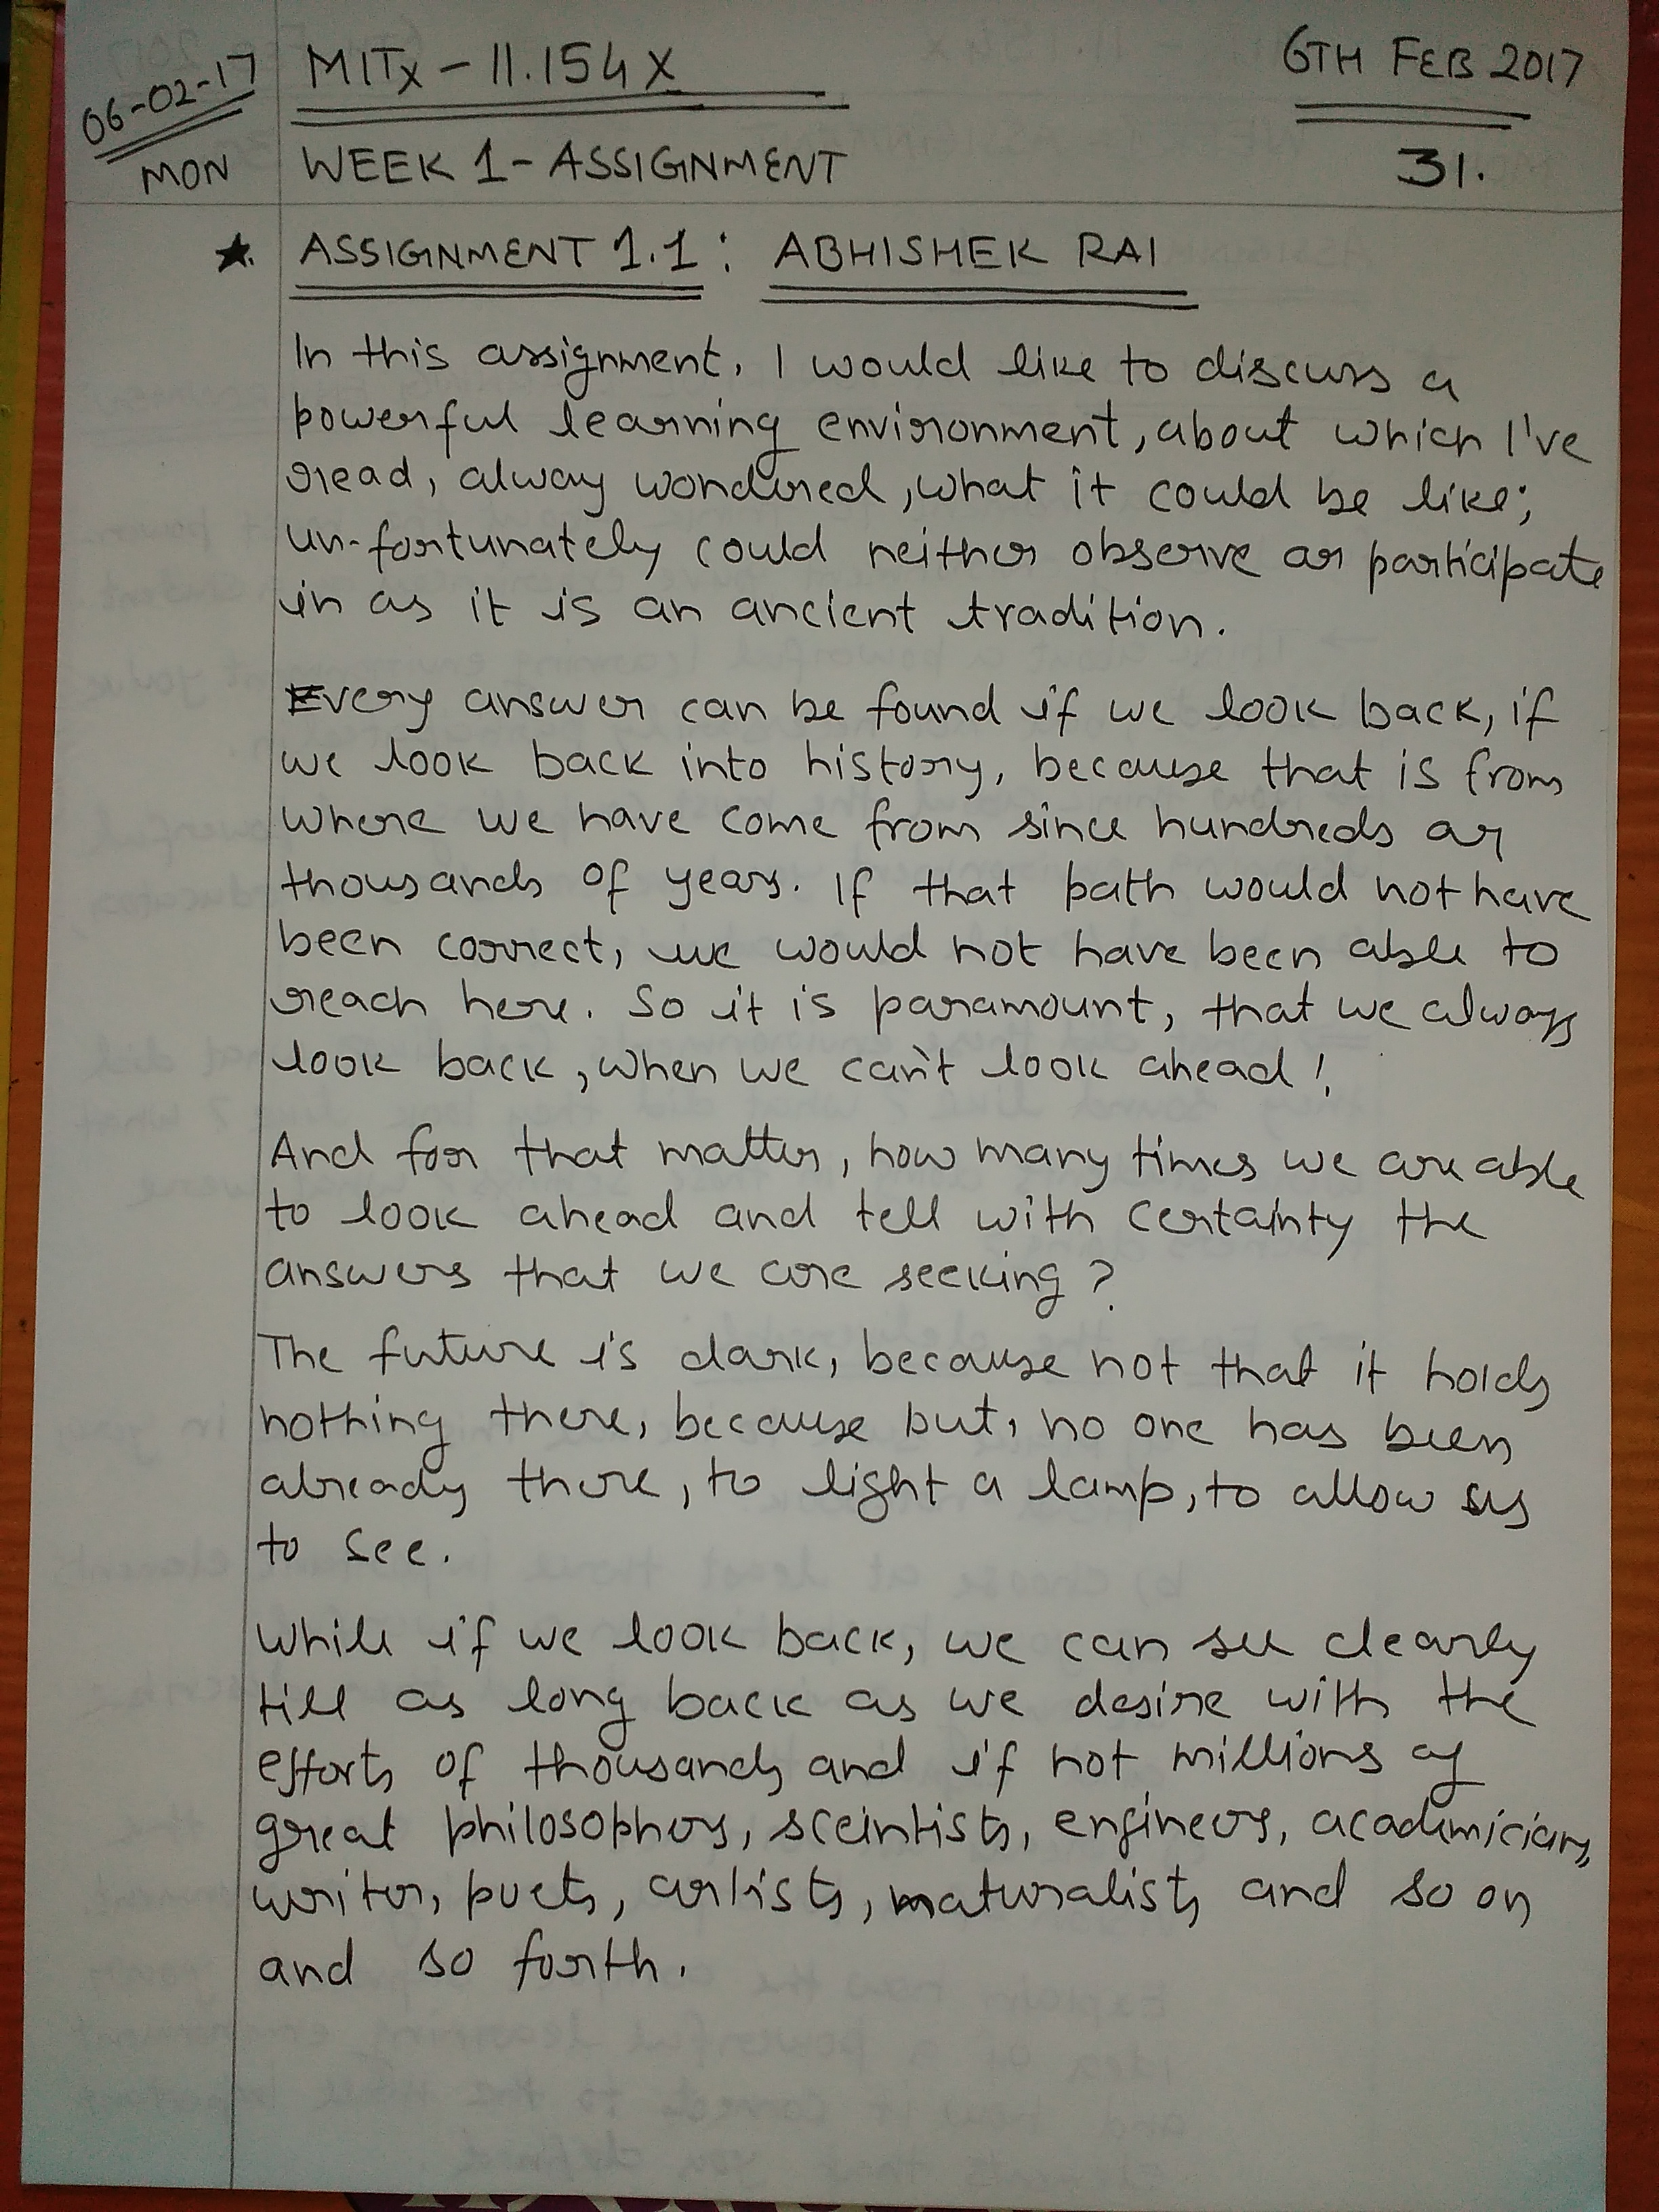 06-02-17
MON
MITx - 11.154x
6TH FEB 2017
WEEK 1 - ASSIGNMENT
31.
★. ASSIGNMENT 1.1 : ABHISHEK RAI
In this assignment, I would like to discuss a
powerful learning environment, about which I've
read, alway wondered, what it could be like;
un-fortunately could neither observe or participate
in as it is an ancient tradition.
Every answer can be found if we look back, if
we look back into history, because that is from
where we have come from since hundreds or
thousands of years. If that path would not have
been correct, we would not have been able to
reach here. So it is paramount, that we always
look back, when we can't look ahead!
And for that matter, how many times we are able
to look ahead and tell with certainty the
answers that we are seeking?
The future is dark, because not that it holds
nothing there, because but, no one has been
already there, to light a lamp, to allow us
to see.
While if we look back, we can see clearly
till as long back as we desire with the
efforts of thousands and if not millions of
great philosophers, sceintists, engineers, academicians,
writer, poets, artists, naturalists and so on
and so forth.